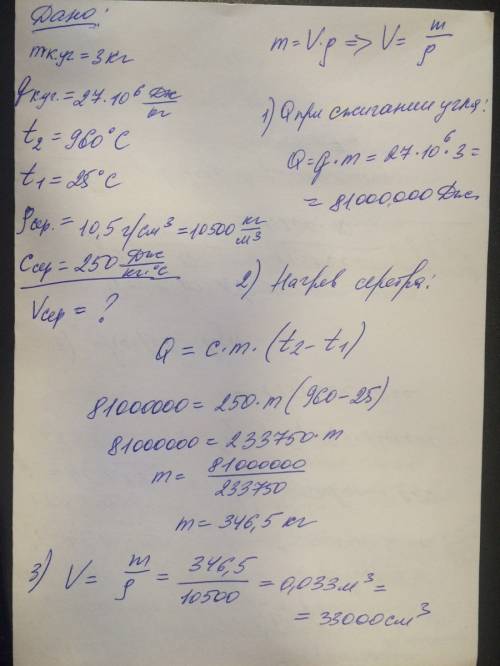 Дано:
m к.уг. = 3 кг
q к.уг. = 27·10⁶ Дж/кг
t₂ = 960°С
t₁ = 25°С
ρсер. = 10,5 г/см³ = 10500 кг/м³
Ссер = 250 Дж/кг·°С
Vсер = ?
m = V·ρ => V = m/ρ
1) Q при сжигании угля:
Q = q·m = 27·10⁶·3 =
= 81000,000 Дж
2) Нагрев серебра:
Q = c·m·(t₂ - t₁)
81000000 = 250·m(960-25)
81000000 = 233750·m
m = 81000000/233750
m = 346,5 кг
3) V = m/ρ = 346,5/10500 = 0,033 м³ =
= 33000 см³